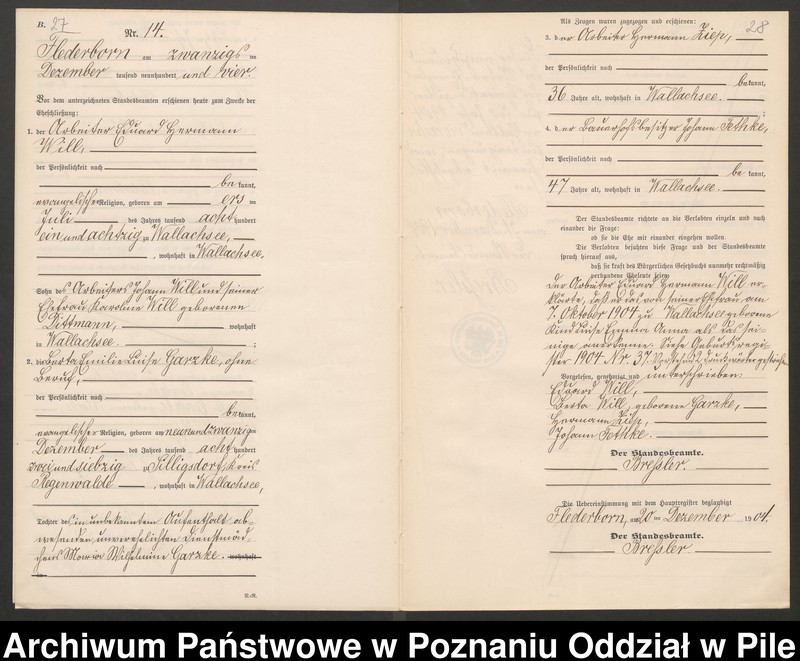 B.
27
Nr. 14.
Flederborn am zwanzigsten
Dezember tausend neunhundert und vier
Vor dem unterzeichneten Standesbeamten erschienen heute zum Zwecke der
Eheschließung:
1. der Arbeiter Eduard Hermann
Will,
der Persönlichkeit nach
bekannt,
evangelischer Religion, geboren am ersten
Juli des Jahres tausend achthundert
ein und achtzig zu Wallachsee,
, wohnhaft in Wallachsee.
Sohn des Arbeiters Johann Will und seiner
Ehefrau Karoline Will geborenen
Dittmann, wohnhaft
in Wallachsee. ;
2. die Berta Emilie Luise Garzke, ohne
Beruf,
der Persönlichkeit nach
bekannt,
evangelischer Religion, geboren am neunundzwanzigsten
Dezember des Jahres tausend achthundert
zwei und siebzig zu Silligsdorf, Kreis
Regenwalde , wohnhaft in Wallachsee,
Tochter der in unbekanntem Aufenthalt ab-
wesenden unverehelichten Dienstmäd-
chens Maria Wilhelmine Garzke. wohnhaft
in
B.-R.
28
Als Zeugen waren zugezogen und erschienen:
3. der Arbeiter Hermann Ziep,
der Persönlichkeit nach
bekannt,
36 Jahre alt, wohnhaft in Wallachsee.
;
4. der Bauerhofsbesitzer Johann Fethke,
der Persönlichkeit nach
bekannt,
47 Jahre alt, wohnhaft in Wallachsee.
Der Standesbeamte richtete an die Verlobten einzeln und nach
einander die Frage:
ob sie die Ehe mit einander eingehen wollen.
Die Verlobten bejahten diese Frage und der Standesbeamte
sprach hierauf aus,
daß sie kraft des Bürgerlichen Gesetzbuchs nunmehr rechtmäßig
verbundene Eheleute seien.
Der Arbeiter Eduard Hermann Will er-
klärte, daß er das von seiner Ehefrau am
7. Oktober 1904 zu Wallachsee geborene
Kind Luise Emma Anna als das sei-
nige anerkenne. Siehe Geburtsregi-
ster 1904 Nr. 37. Vorstehend Druckwörter gestrichen.
Vorgelesen, genehmigt und unterschrieben:
Eduard Will,
Berta Will, geborene Garzke,
Hermann Ziep,
Johann Fethke.
Der Standesbeamte.
Breßler.
Die Uebereinstimmung mit dem Hauptregister beglaubigt
Flederborn, am 20ten Dezember 1904.
Der Standesbeamte.
Breßler.
Archiwum Państwowe w Poznaniu Oddział w Pile